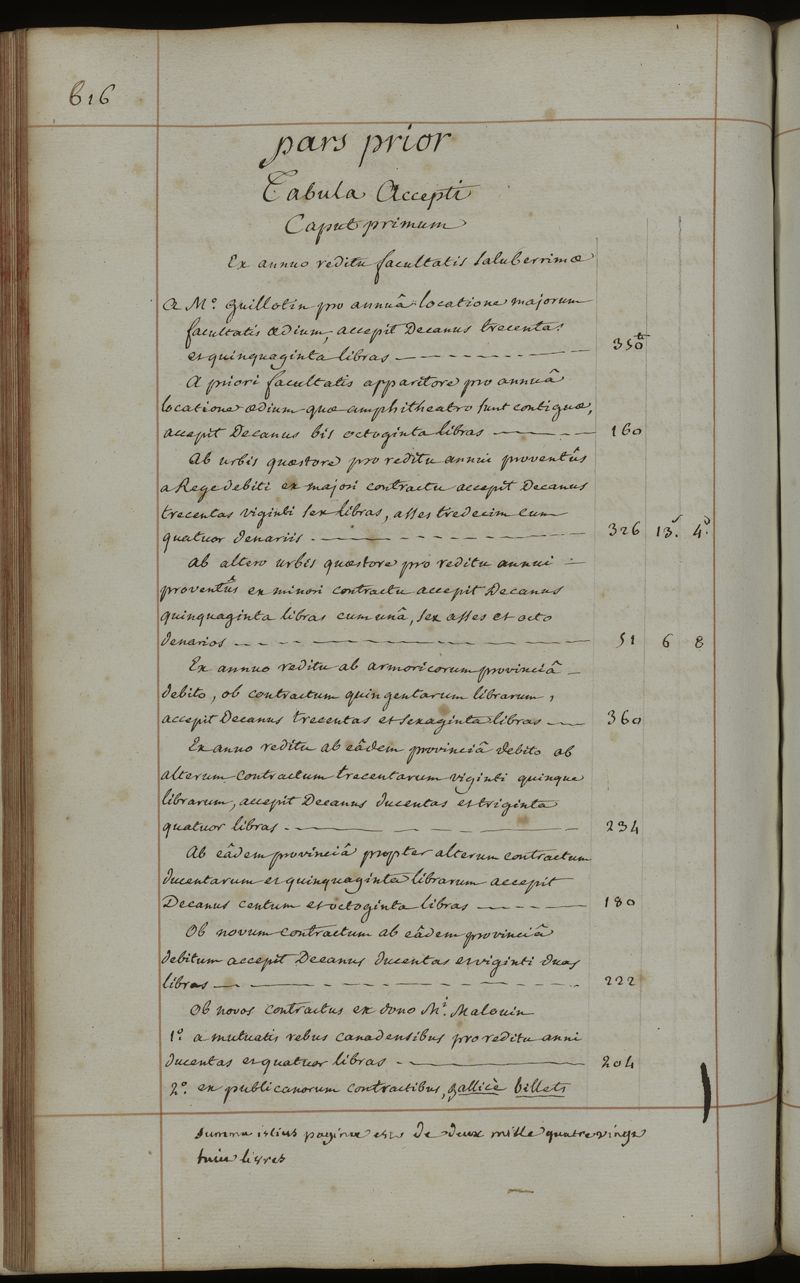 616
pars prior
Tabula Accepti
Caput primum
Ex annuo reditu facultatis saluberrimæ
A M.o Guillotin pro annuâ locatione majorum
facultatis ædium, accepit Decanus trecentas
et quinquaginta libras 350 tt
A priori facultatis apparitore pro annuâ
locatione ædium quæ amphitheatro sunt contiguæ,
accepit Decanus bis octoginta libras 160
Ab urbis quæstore pro reditu annui proventûs
a Rege debiti ex majori contractu accepit Decanus
trecentas viginti sex libras, asses tredecim cum
quatuor denariis 326 13.s 4.d
Ab altero urbis quæstore pro reditu annui
proventûs ex minori contractu accepit Decanus
quinquaginta libras cum unâ, sex asses et octo
denarios 51 6 8
Ex annuo reditu ab armoricorum provinciâ
debito, ob contractum quingentarum librarum,
accepit Decanus trecentas et sexaginta libras 360
Ex anno reditu ab eâdem provinciâ debito ob
alterum contractum trecentarum viginti quinque
librarum, accepit Decanus ducentas et triginta
quatuor libras 234
Ab eâdem provinciâ propter alterum contractum
ducentarum et quinquaginta librarum accepit
Decanus centum et octoginta libras 180
Ob novum contractum ab eâdem provinciâ
debitum accepit Decanus ducentas et viginti duas
libras 222
Ob novos contractus ex dono M.i Malouin
1.o a mutuatis rebus canadensibus pro reditu anni
ducentas et quatuor libras 204
2.o ex publicanorum contractibus, gallicè billets
Summa istius paginæ est de deux mille quatre vingt
huit livres